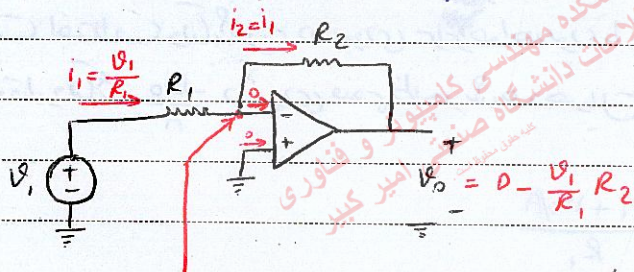 i₂=i₁
R₂
i₁ = v₁/R₁
R₁
0
−
0
+
v₁
+
−
+
v₀ = 0 − v₁/R₁ R₂
−
دانشکده مهندسی کامپیوتر و فناوری
اطلاعات دانشگاه صنعتی امیر کبیر